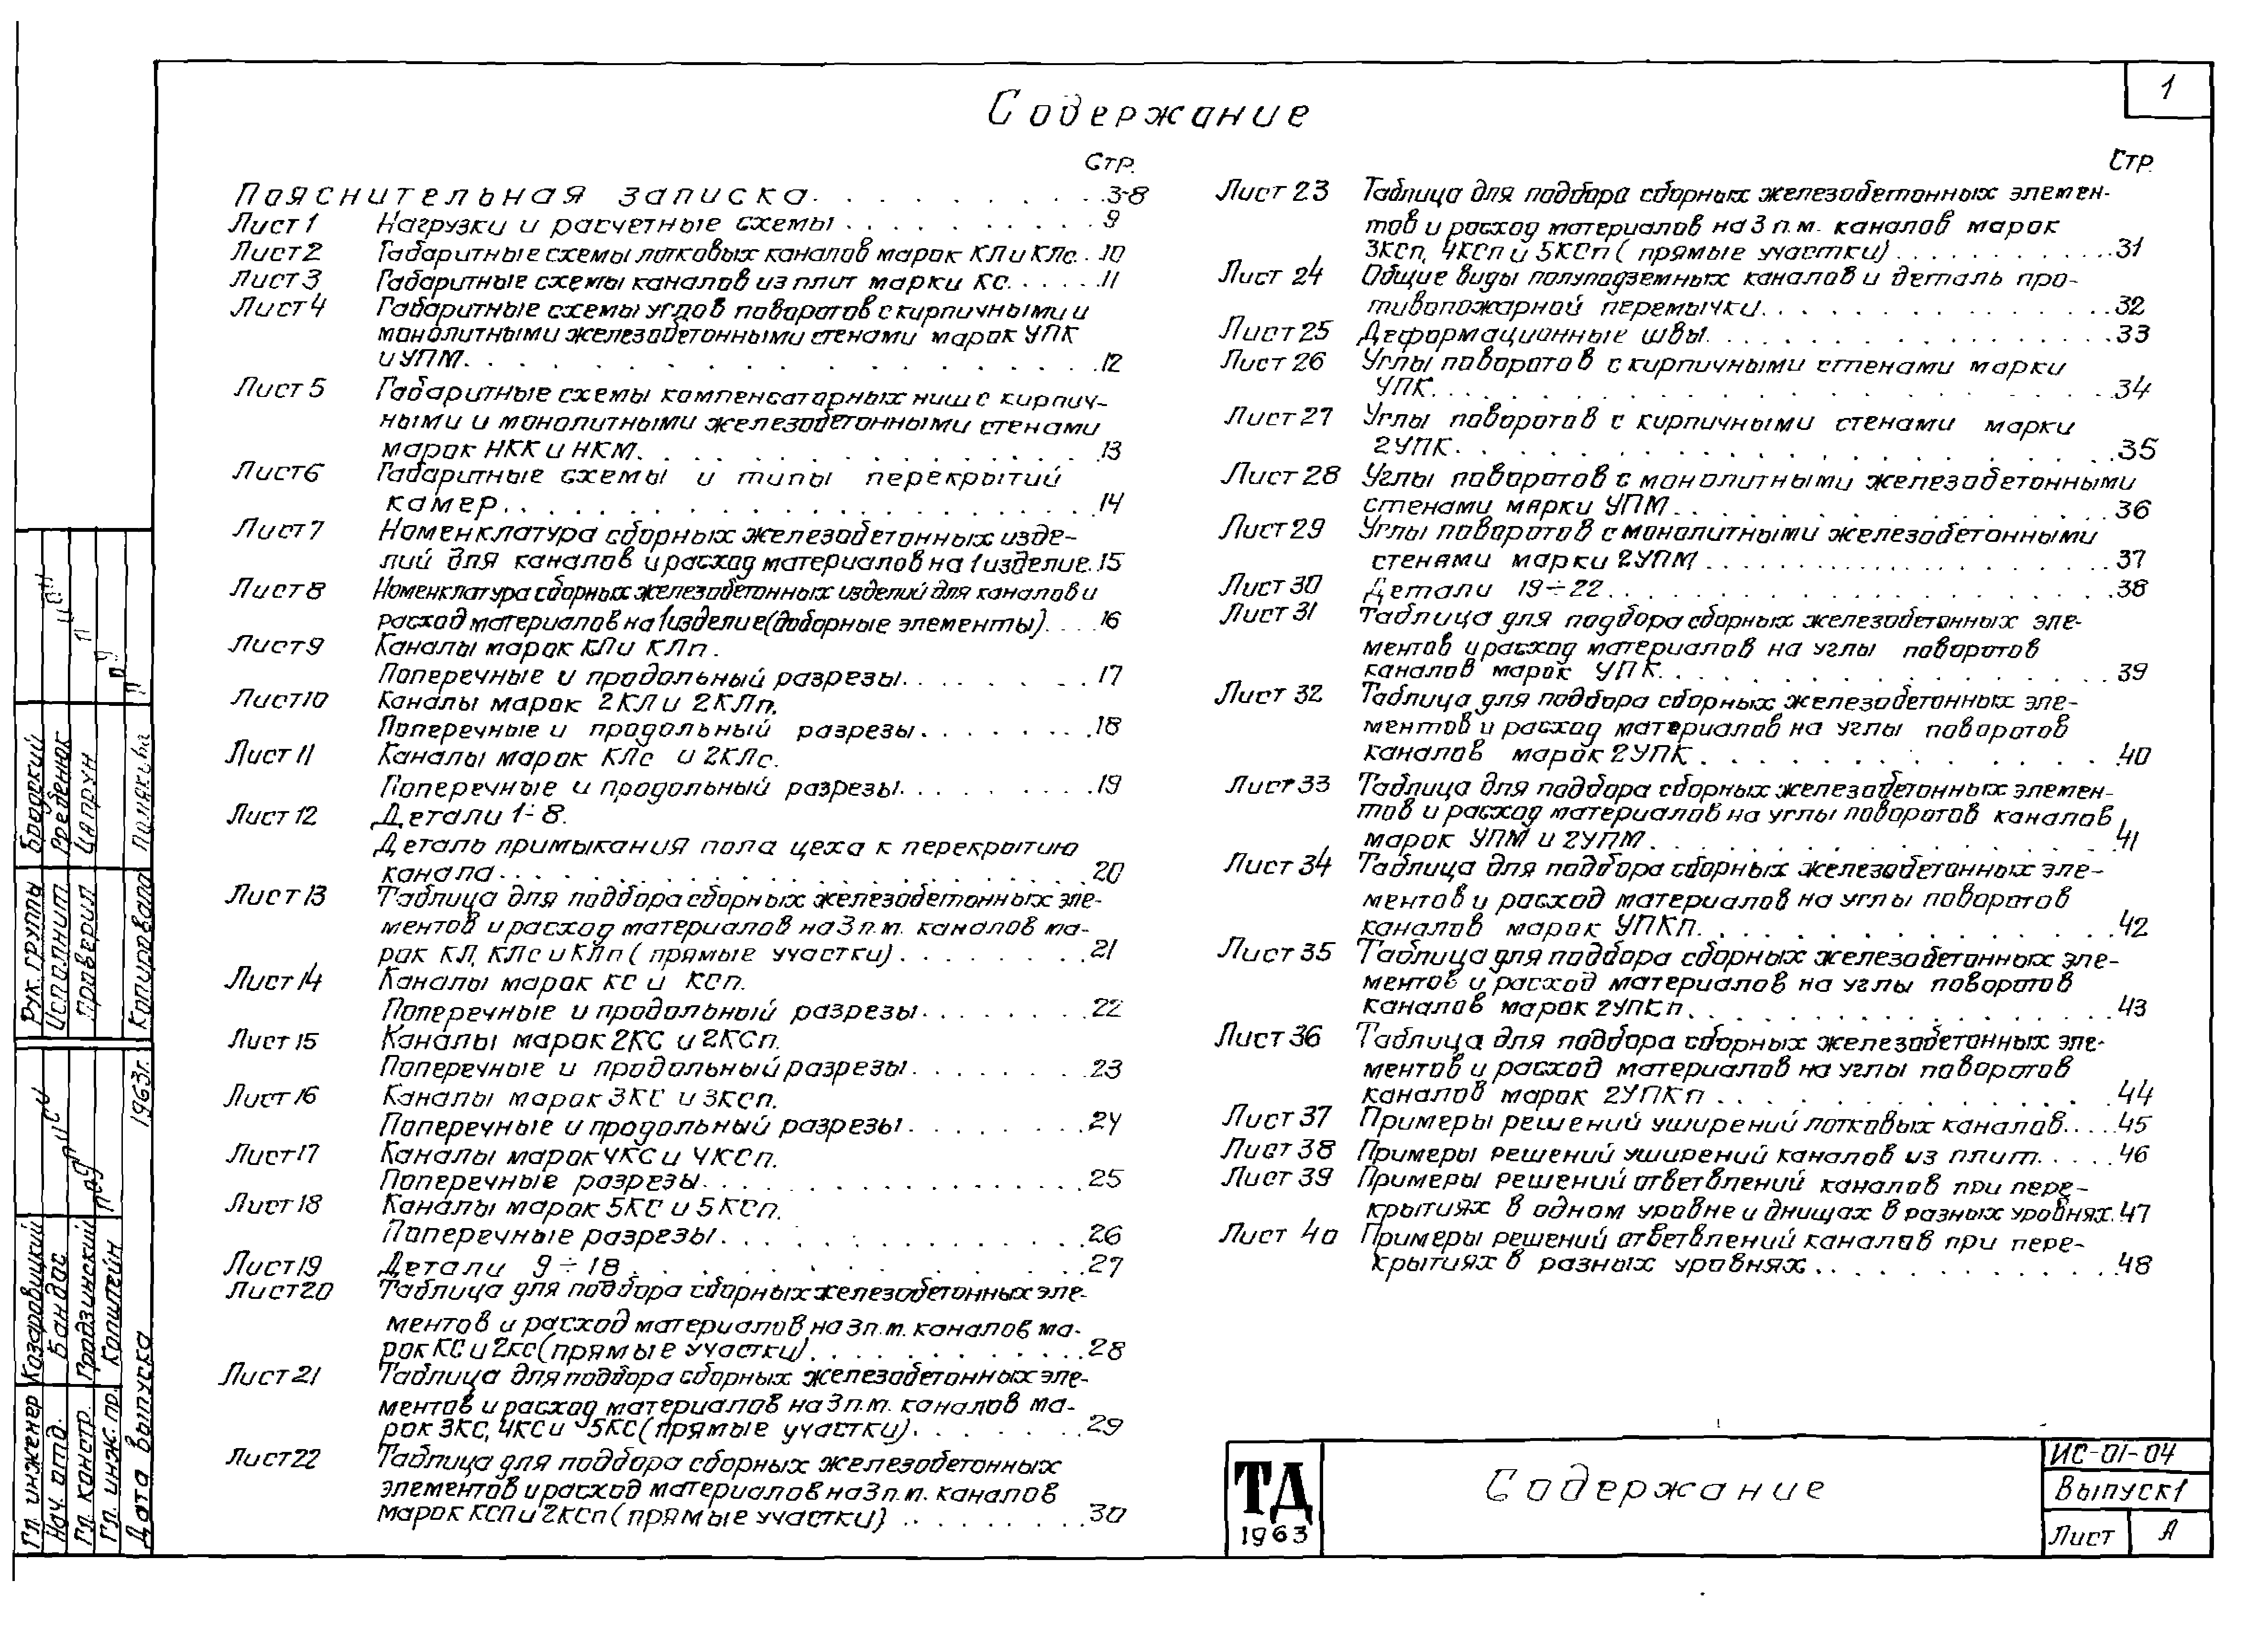 1
Содержание
Стр.
Пояснительная записка. . . . . . . . . . 3-8
Лист 1 Нагрузки и расчетные схемы . . . . . . . . . . 9
Лист 2 Габаритные схемы лотковых каналов марок КЛ и КЛс. . 10
Лист 3 Габаритные схемы каналов из плит марки КС. . . . . 11
Лист 4 Габаритные схемы углов поворотов с кирпичными и
монолитными железобетонными стенами марок УПК
и УПМ. . . . . . . . . . . . . . . 12
Лист 5 Габаритные схемы компенсаторных ниш с кирпич-
ными и монолитными железобетонными стенами
марок НКК и НКМ. . . . . . . . . . . . 13
Лист 6 Габаритные схемы и типы перекрытий
камер. . . . . . . . . . . . . . . 14
Лист 7 Номенклатура сборных железобетонных изде-
лий для каналов и расход материалов на 1 изделие. 15
Лист 8 Номенклатура сборных железобетонных изделий для каналов и
расход материалов на 1 изделие (доборные элементы). . . . 16
Лист 9 Каналы марок КЛ и КЛп.
Поперечные и продольный разрезы. . . . . . . 17
Лист 10 Каналы марок 2КЛ и 2КЛп.
Поперечные и продольный разрезы. . . . . . . . 18
Лист 11 Каналы марок КЛс и 2КЛс.
Поперечные и продольный разрезы. . . . . . . . 19
Лист 12 Детали 1÷8.
Деталь примыкания пола цеха к перекрытию
канала. . . . . . . . . . . . . . . 20
Лист 13 Таблица для подбора сборных железобетонных эле-
ментов и расход материалов на 3 п.м. каналов ма-
рок КЛ, КЛс и КЛп (прямые участки) . . . . . . . . 21
Лист 14 Каналы марок КС и КСп.
Поперечные и продольный разрезы. . . . . . . . 22
Лист 15 Каналы марок 2КС и 2КСп.
Поперечные и продольный разрезы. . . . . . . . 23
Лист 16 Каналы марок 3КС и 3КСп.
Поперечные и продольный разрезы. . . . . . . . 24
Лист 17 Каналы марок 4КС и 4КСп.
Поперечные разрезы. . . . . . . . . . . . . . 25
Лист 18 Каналы марок 5КС и 5КСп.
Поперечные разрезы. . . . . . . . . . . . . 26
Лист 19 Детали 9÷18. . . . . . . . . . . . . 27
Лист 20 Таблица для подбора сборных железобетонных эле-
ментов и расход материалов на 3 п.м. каналов ма-
рок КС и 2КС (прямые участки). . . . . . . . . . 28
Лист 21 Таблица для подбора сборных железобетонных эле-
ментов и расход материалов на 3 п.м. каналов ма-
рок 3КС, 4КС и 5КС (прямые участки). . . . . . . 29
Лист 22 Таблица для подбора сборных железобетонных
элементов и расход материалов на 3 п.м. каналов
марок КСп и 2КСп (прямые участки) . . . . . . . . 30
Стр.
Лист 23 Таблица для подбора сборных железобетонных элемен-
тов и расход материалов на 3 п.м. каналов марок
3КСп, 4КСп и 5КСп (прямые участки) . . . . . . . . . . 31
Лист 24 Общие виды полуподземных каналов и деталь про-
тивопожарной перемычки. . . . . . . . . . . . . 32
Лист 25 Деформационные швы. . . . . . . . . . . . . . 33
Лист 26 Углы поворотов с кирпичными стенами марки
УПК. . . . . . . . . . . . . . . . . 34
Лист 27 Углы поворотов с кирпичными стенами марки
2УПК. . . . . . . . . . . . . . . . . 35
Лист 28 Углы поворотов с монолитными железобетонными
стенами марки УПМ. . . . . . . . . . . . . 36
Лист 29 Углы поворотов с монолитными железобетонными
стенами марки 2УПМ . . . . . . . . . . . . . 37
Лист 30 Детали 19÷22. . . . . . . . . . . . . . . 38
Лист 31 Таблица для подбора сборных железобетонных эле-
ментов и расход материалов на углы поворотов
каналов марок УПК. . . . . . . . . . . . . . 39
Лист 32 Таблица для подбора сборных железобетонных эле-
ментов и расход материалов на углы поворотов
каналов марок 2УПК . . . . . . . . . . . . . 40
Лист 33 Таблица для подбора сборных железобетонных элемен-
тов и расход материалов на углы поворотов каналов
марок УПМ и 2УПМ . . . . . . . . . . . . . 41
Лист 34 Таблица для подбора сборных железобетонных эле-
ментов и расход материалов на углы поворотов
каналов марок УПКп. . . . . . . . . . . . . 42
Лист 35 Таблица для подбора сборных железобетонных эле-
ментов и расход материалов на углы поворотов
каналов марок 2УПКп. . . . . . . . . . . . . 43
Лист 36 Таблица для подбора сборных железобетонных эле-
ментов и расход материалов на углы поворотов
каналов марок 2УПКп . . . . . . . . . . . . 44
Лист 37 Примеры решений уширений лотковых каналов. . . . . 45
Лист 38 Примеры решений уширений каналов из плит. . . . . 46
Лист 39 Примеры решений ответвлений каналов при пере-
крытиях в одном уровне и днищах в разных уровнях. 47
Лист 40 Примеры решений ответвлений каналов при пере-
крытиях в разных уровнях. . . . . . . . . . . . 48
Гл. инженер Казаровицкий
Нач. отд. Бандас
Гл. констр. Градзинский
Гл. инж. пр. Капштейн
Дата выпуска 1963г.
Рук. группы Бродский
Исполнил Гребенюк
Проверил Цапрун
Копировала
ТД
1963
Содержание
ИС-01-04
Выпуск 1
Лист А